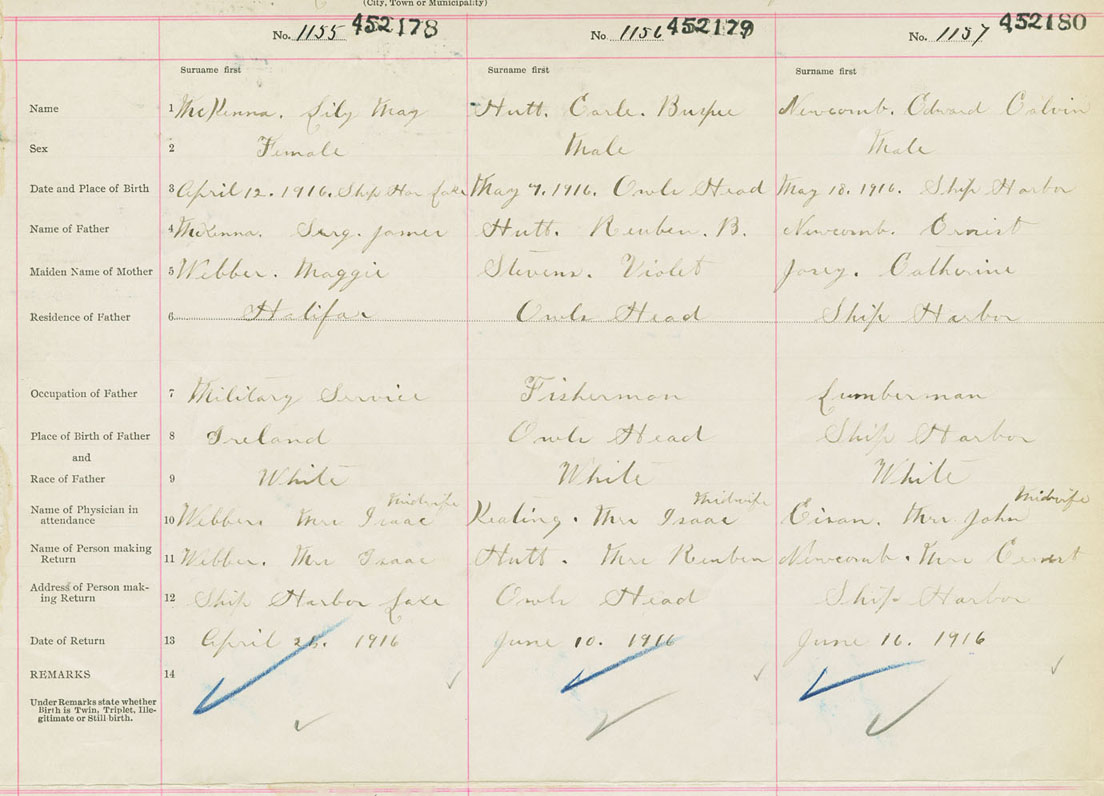 (City, Town or Municipality)
No. 1155 452178 No 1156 452179 No. 1157 452180
Surname first Surname first Surname first
Name 1 McKenna. Lily May Hutt. Earle. Buspee Newcomb. Edward Calvin
Sex 2 Female Male Male
Date and Place of Birth 3 April 12. 1916. Ship Har Lake May 7. 1916. Owls Head May 18. 1916. Ship Harbor
Name of Father 4 McKenna. Serg. James Hutt. Reuben. B. Newcomb. Ernist
Maiden Name of Mother 5 Webber. Maggie Stevens. Violet Josey. Catherine
Residence of Father 6 Halifax Owls Head Ship Harbor
Occupation of Father 7 Military Service Fisherman Lumberman
Place of Birth of Father 8 Ireland Owls Head Ship Harbor
and
Race of Father 9 White White White
Midwife Midwife Midwife
Name of Physician in
attendance 10 Webber. Mrs Isaac Keating. Mrs Isaac Mrs John
Name of Person making
Return 11 Webber. Mrs Isaac Hutt. Mrs Reuben Newcomb. Mrs Ernist
Address of Person mak-
ing Return 12 Ship Harbor Lake Owls Head Ship Harbor
Date of Return 13 April 25. 1916 June 10. 1916 June 16. 1916
REMARKS 14
Under Remarks state whether
Birth is Twin, Triplet, Ille-
gitimate or Still birth.